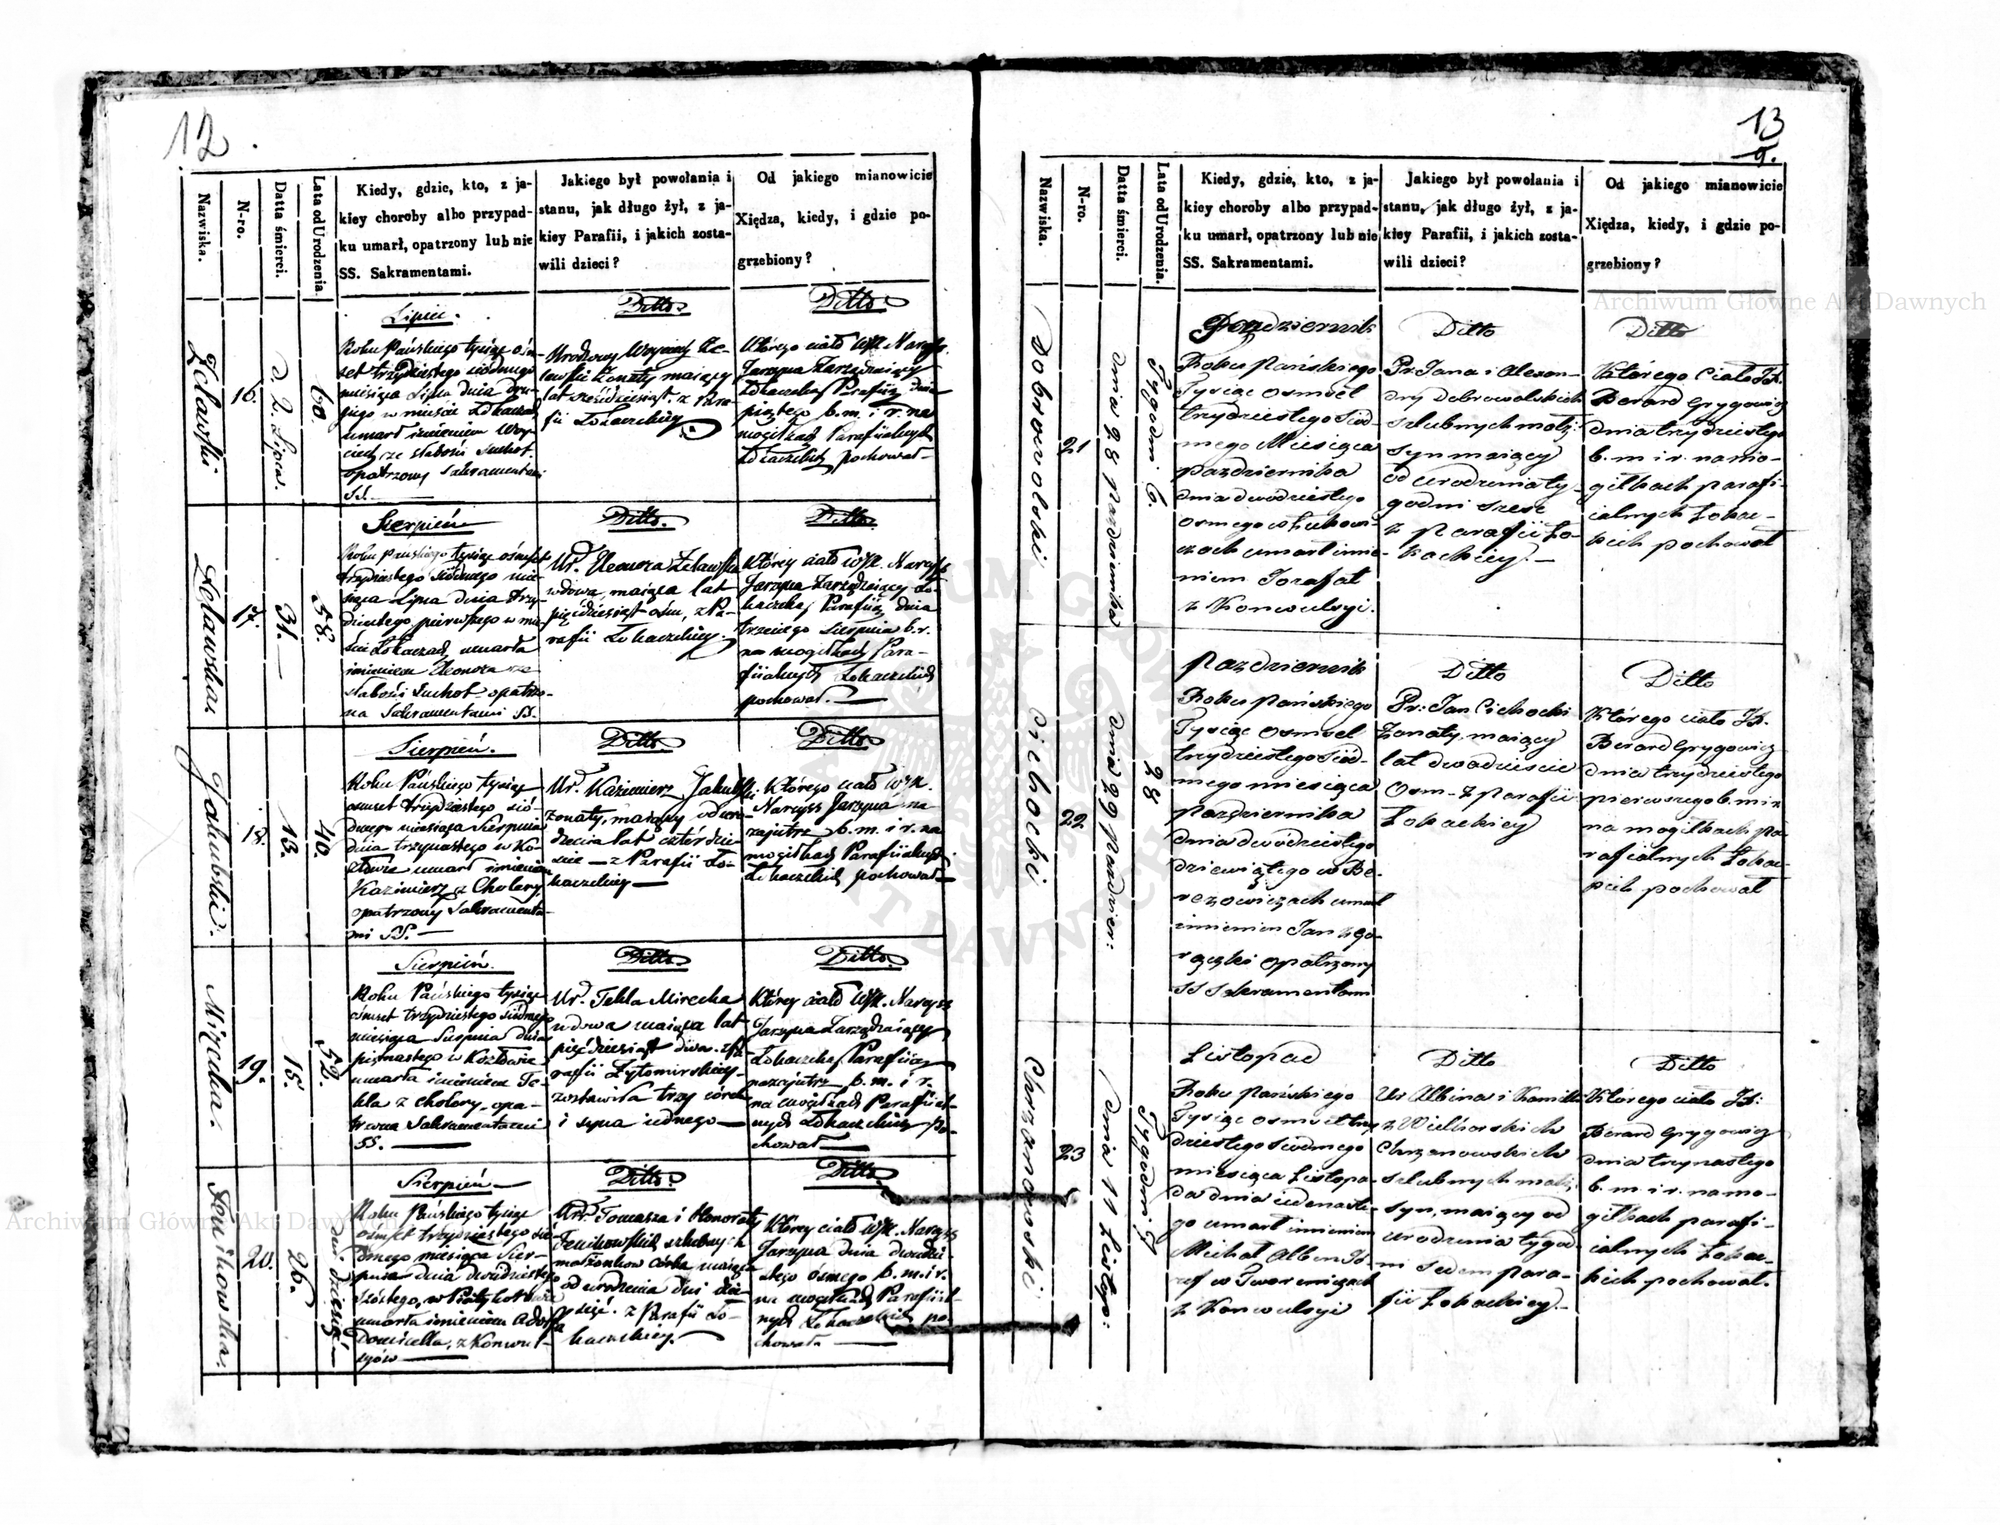 12
Nazwiska.
N-ro.
Datta śmierci.
Lata od Urodzenia.
Kiedy, gdzie, kto, z ja-
kiey choroby albo przypad-
ku umarł, opatrzony lub nie
SS. Sakramentami.
Jakiego był powołania i
stanu, jak długo żył, z ja-
kiey Parafii, i jakich zosta-
wili dzieci?
Od jakiego mianowicie
Xiędza, kiedy, i gdzie po-
grzebiony?
Żelawski
16.
d. 2. Lipca.
60.
Lipiec.
Roku Pańskiego tysiąc ośm-
set trzydziestego siódmego
miesiąca Lipca dnia dru-
giego w mieście Łokaczach
umarł imieniem Woy-
ciech, ze słabości Suchot.
opatrzony Sakramentami
SS.
Ditto.
Urodzony Woyciech Że-
lawski Żonaty maiący
lat sześćdziesiąt. z Para-
fii Łokaczkiey.
Ditto.
Którego ciało WJX. Narcyss
Jarzyna Zarządzaiący
Łokaczką Parafiią dnia
piątego b. m. i r. na
mogiłkach Parafiialnych
Łokaczkich pochował
Żelawska.
17.
31.
58.
Sierpień
Roku Pańskiego tysiąc ośmset
trzydziestego siódmego mie-
siąca Lipca dnia trzy-
dziestego pierwszego w mie-
ście Łokaczach umarła
imieniem Eleonora ze
słabości Suchot opatrzo-
na Sakramentami SS.
Ditto.
Ur. Eleonora Żelawska
wdowa, maiąca lat
pięćdziesiąt ośm, z Pa-
rafii Łokaczkiey.
Ditto.
Którey ciało WJX. Narcyss
Jarzyna Zarządzaiący Ło-
kaczką Parafiią dnia
trzeciego Sierpnia b. r.
na mogiłkach Para-
fiialnych Łokaczkich
pochował.
Jakubski.
18.
13.
40.
Sierpień.
Roku Pańskiego tysiąc
ośmset trzydziestego sió-
dmego miesiąca Sierpnia
dnia trzynastego w Ko-
złowie umarł imieniem
Kazimierz z Cholery
opatrzony Sakramenta-
mi SS.
Ditto.
Ur. Kazimierz Jakubski
żonaty, maiący od uro-
dzenia lat cztérdzie-
ście z Parafii Ło-
kaczkiey
Ditto.
Którego ciało WJX.
Narcyss Jarzyna na
zajutrz b. m. i r. na
mogiłkach Parafiialnych
Łokaczkich pochował
Mirecka.
19.
15.
52.
Sierpień.
Roku Pańskiego tysiąc
ośmset trzydziestego siódmego
miesiąca Sierpnia dnia
piętnastego w Kozłowie
umarła imieniem Te-
kla z cholery, opa-
trzona Sakramentami
SS.
Ditto.
Ur. Tekla Mirecka
wdowa maiąca lat
pięćdziesiąt dwa. z Pa-
rafii Żytomirskiey
zostawiła trzy córek
i syna iednego
Ditto.
Którey ciało WJX. Narcyss
Jarzyna Zarządzaiący
Łokaczką Parafiią
nazajutrz b. m. i r.
na mogiłkach Parafiial-
nych Łokaczkich po-
chował
Tomikowska.
20.
26.
dni dziesięć
Sierpień
Roku Pańskiego tysiąc
ośmset trzydziestego sió-
dmego miesiąca Sier-
pnia dnia dwudziestego
szóstego, w
umarła imieniem Adolfa
Domicella, z Konwul-
syów
Ditto.
Urd. Tomasza i Honoraty
Tomikowskich szlubnych
małżonków córka maiąca
od urodzenia dni dzie-
sięć. z Parafii Ło-
kaczkiey.
Ditto.
Którey ciało WJX. Narcyss
Jarzyna dnia dwudzie-
stego ósmego b. m. i r.
na mogiłkach Parafiial-
nych Łokaczkich po-
chował.
13
9.
Nazwiska.
N-ro.
Datta śmierci.
Lata od Urodzenia.
Kiedy, gdzie, kto, z ja-
kiey choroby albo przypad-
ku umarł, opatrzony lub nie
SS. Sakramentami.
Jakiego był powołania i
stanu, jak długo żył, z ja-
kiey Parafii, i jakich zosta-
wili dzieci?
Od jakiego mianowicie
Xiędza, kiedy, i gdzie po-
grzebiony?
Dobrowolski
21
dnia 28 Pazdziernika
Tygodni 6.
Pazdziernik
Roku Pańskiego
Tysiąc Osmset
trzydziestego Siód-
mego Miesiąca
Pazdziernika
dnia dwódziestego
osmego w
umarł imie-
niem Jozafat
z Konwulsyi.
Ditto
Pr. Jana i Alexan-
dry Dobrowolskich
szlubnych małż:
syn maiący
od urodzenia ty-
godni sześć
z Parafii Ło-
kackiey.
Ditto
Którego Ciało JX.
Berard Grygowicz
dnia trzydziestego
b. m. i r. na mo-
giłkach parafi-
ialnych Łokac-
kich pochował
Cichocki
22
dnia 29 Pazdzier:
28
Pazdziernik
Roku Pańskiego
Tysiąc Osmset
trzydziestego Siód-
mego miesiąca
Pazdziernika
dnia dwódziestego
dziewiątego w Be-
rezowiczach umarł
imieniem Jan z go-
rączki opatrzony
SS Sakramentami
Ditto
Pr. Jan Cichocki
Żonaty, maiący
lat dwadzieście
Osm z parafii
Łokackiey
Ditto
Którego ciało JX.
Berard Grygowicz
dnia trzydziestego
pierwszego b. m. i r.
na mogiłkach pa-
rafialnych Łokac-
kich pochował
Chrzanowski
23
dnia 11 Listop:
Tygodni 7
Listopad
Roku Pańskiego
Tysiąc Osmset trzy-
dziestego Siódmego
miesiąca Listopa-
da dnia iedenaste-
go umarł imieniem
Michał Albin Jó-
zef w
z Konwulsyi
Ditto
Ur Albina i Kamilli
z Wielhorskich
Chrzanowskich
szlubnych małż.
syn, maiący od
urodzenia tygod-
ni siedem para-
fii Łokackiey
Ditto
Którego ciało JX:
Berard Grygowicz
dnia trzynastego
b. m. i r. na mo-
giłkach parafi-
ialnych Łokac-
kich pochował.
Archiwum Główne Akt Dawnych
Archiwum Główne Akt Dawnych